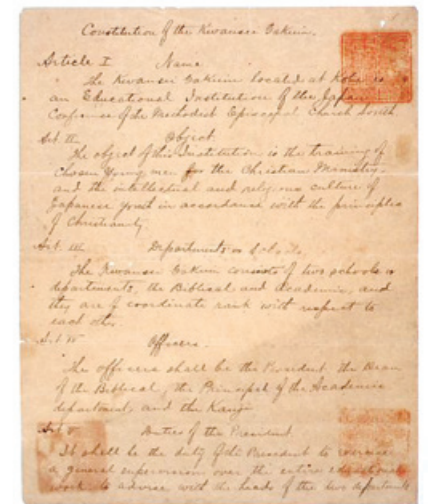 Constitution of the Kwansei Gakuin.
Article I Name
The Kwansei Gakuin located at Kobe is
an Educational Institution of the Japan
Conference of the Methodist Episcopal Church South
Art. II Object
The object of this Institution is the training of
chosen young men for the Christian Ministry
and the intellectual and religious culture of
Japanese youth in accordance with the principles
of Christianity.
Art. III Departments or Schools
The Kwansei Gakuin consists of two schools or
departments, the Biblical and Academic, and
they are of coordinate rank with respect to
each other
Art IV Officers.
The officers shall be the President, the Dean
of the Biblical, the Principal of the Academic
department, and the Kanji
Art V Duties of the President
It shall be the duty of the President to exercise
a general supervision over the entire educational
work to advise with the heads of the two departments